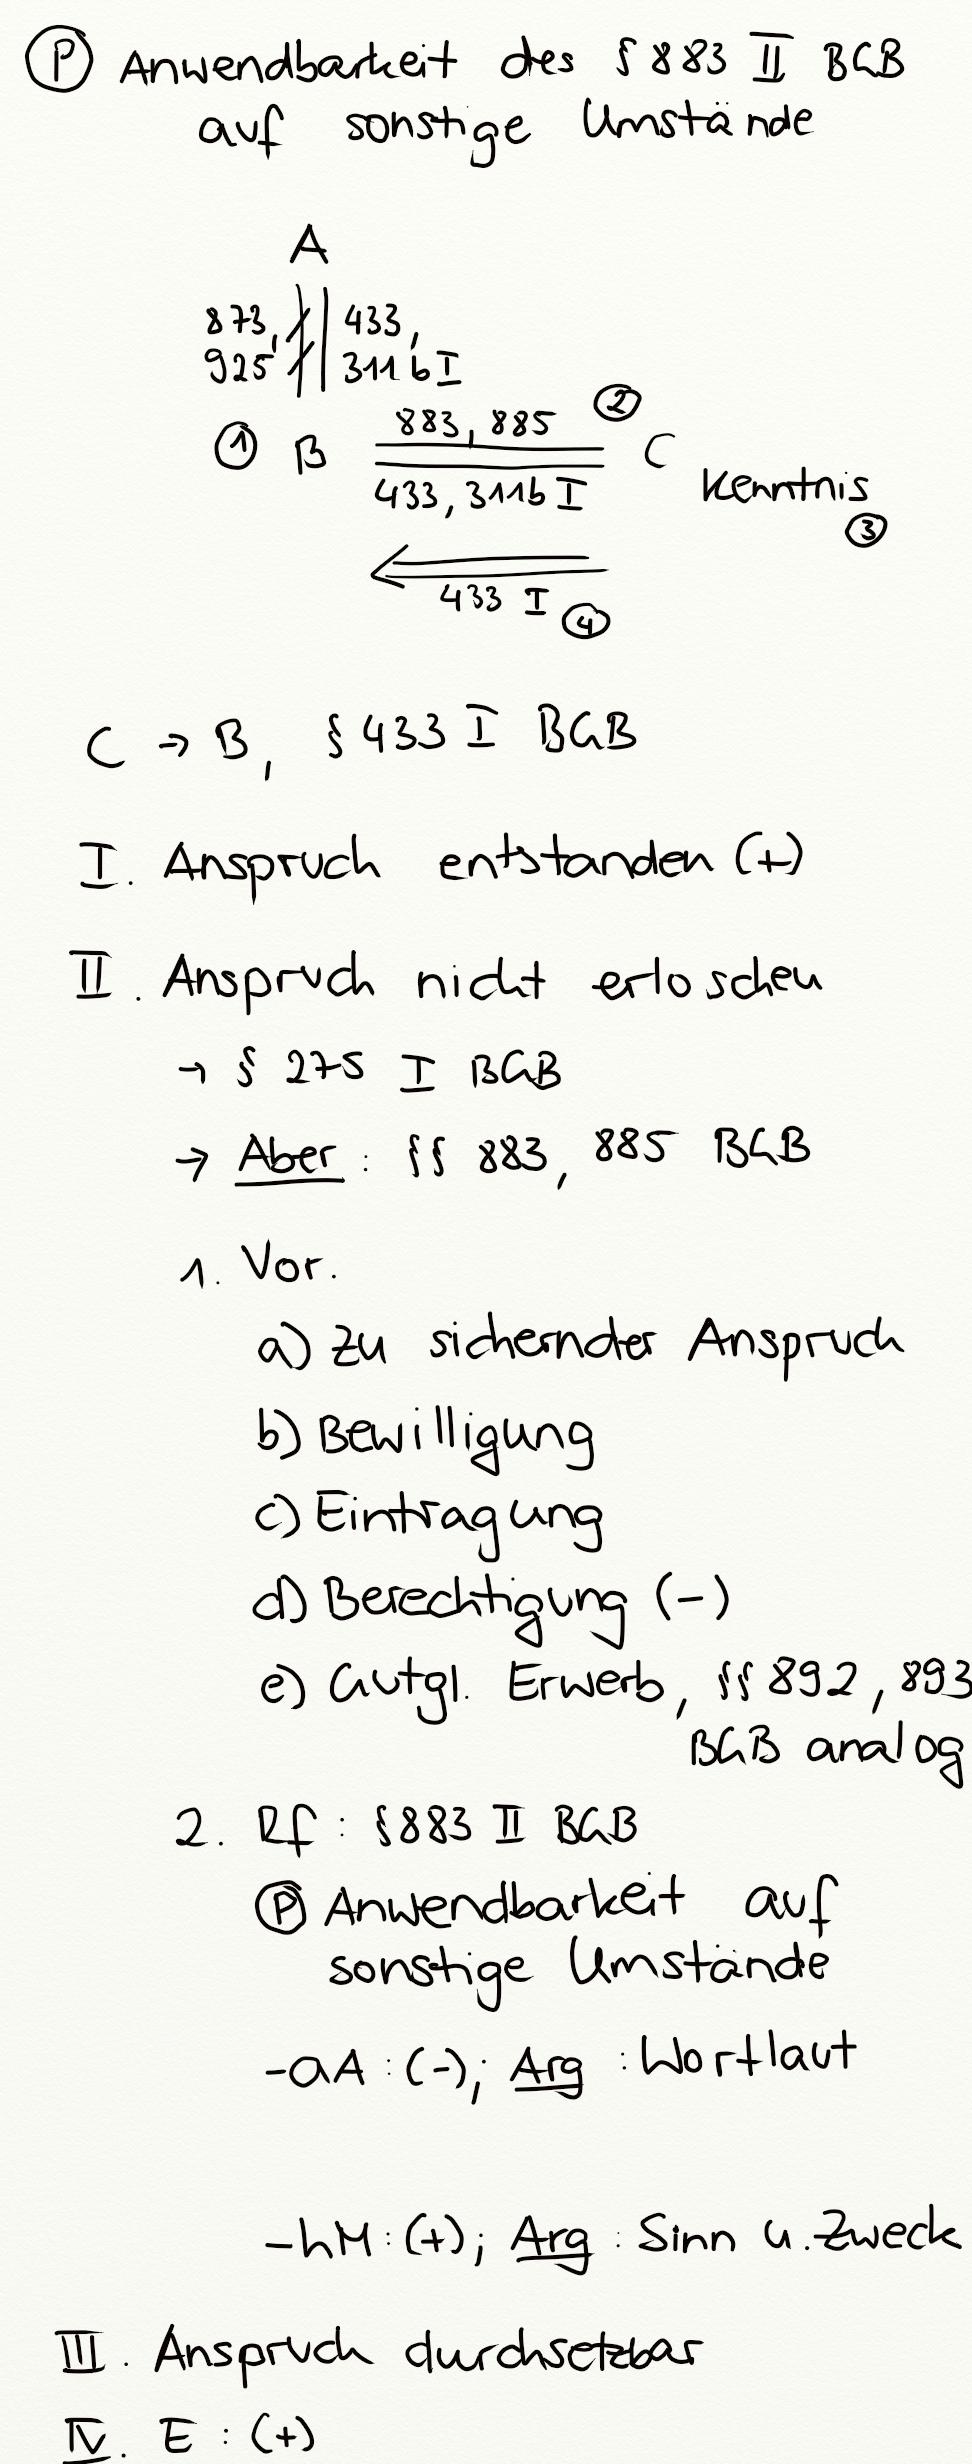 Ⓟ Anwendbarkeit des § 883 II BGB
auf sonstige Umstände
A
873, 433,
925 311b I
883, 885 ②
① B C
Kenntnis
433, 311b I
③
433 I ④
C → B, § 433 I BGB
I. Anspruch entstanden (+)
II. Anspruch nicht erloschen
→ § 275 I BGB
→ Aber: §§ 883, 885 BGB
1. Vor.
a) zu sichernder Anspruch
b) Bewilligung
c) Eintragung
d) Berechtigung (-)
e) Gutgl. Erwerb, §§ 892, 893
BGB analog
2. Rf: § 883 II BGB
Ⓟ Anwendbarkeit auf
sonstige Umstände
- aA: (-); Arg: Wortlaut
- hM: (+); Arg: Sinn u. Zweck
III. Anspruch durchsetzbar
IV. E: (+)